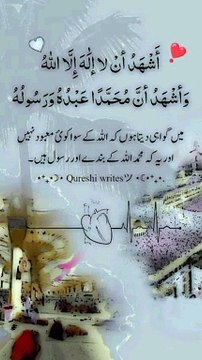 أَشْهَدُ أَنْ لَا إِلٰهَ إِلَّا اللهُ
وَأَشْهَدُ أَنَّ مُحَمَّدًا عَبْدُهُ وَرَسُولُهُ
میں گواہی دیتا ہوں کہ اللہ کے سوا کوئی معبود نہیں
اور یہ کہ محمد اللہ کے بندے اور رسول ہیں۔
Qureshi writesツ